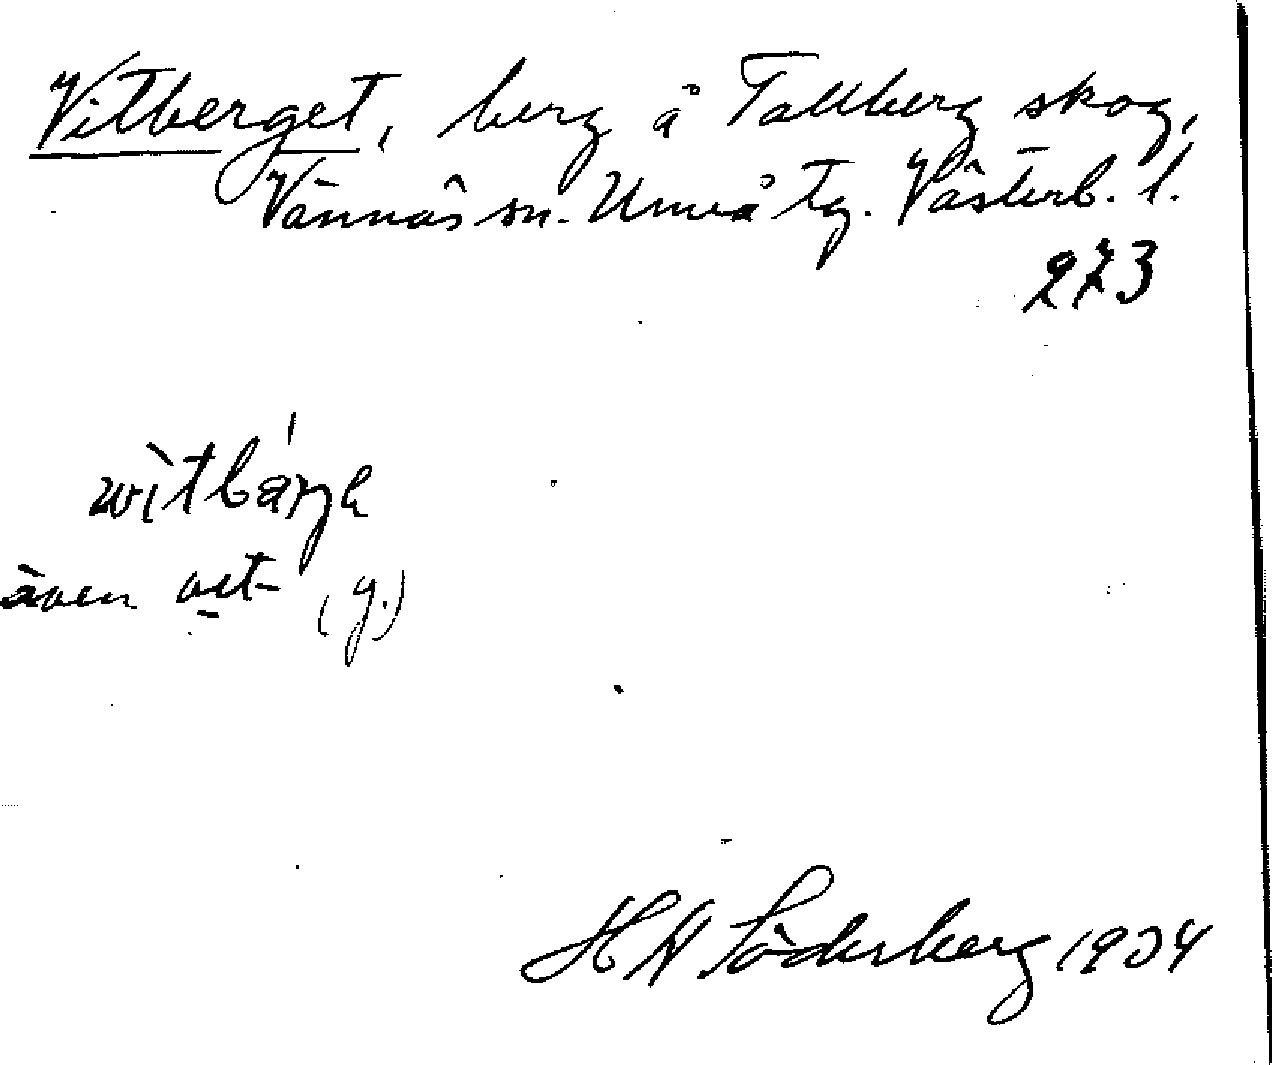 Vitberget, berg å Tallberg skog,
Vännäs sn. Umeå tg. Västerb. l.
273
witbárja
även vit- (y.)
H A Söderberg 1934